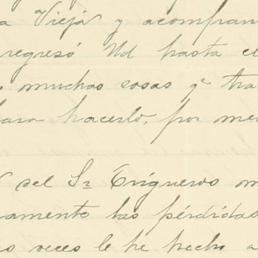 Vieja y acompañ
regresó Ud hasta el
muchas cosas q e tra
para hacerlo, por me
del Sr Trigueros m
amente las pérdidas
veces le he hecho a